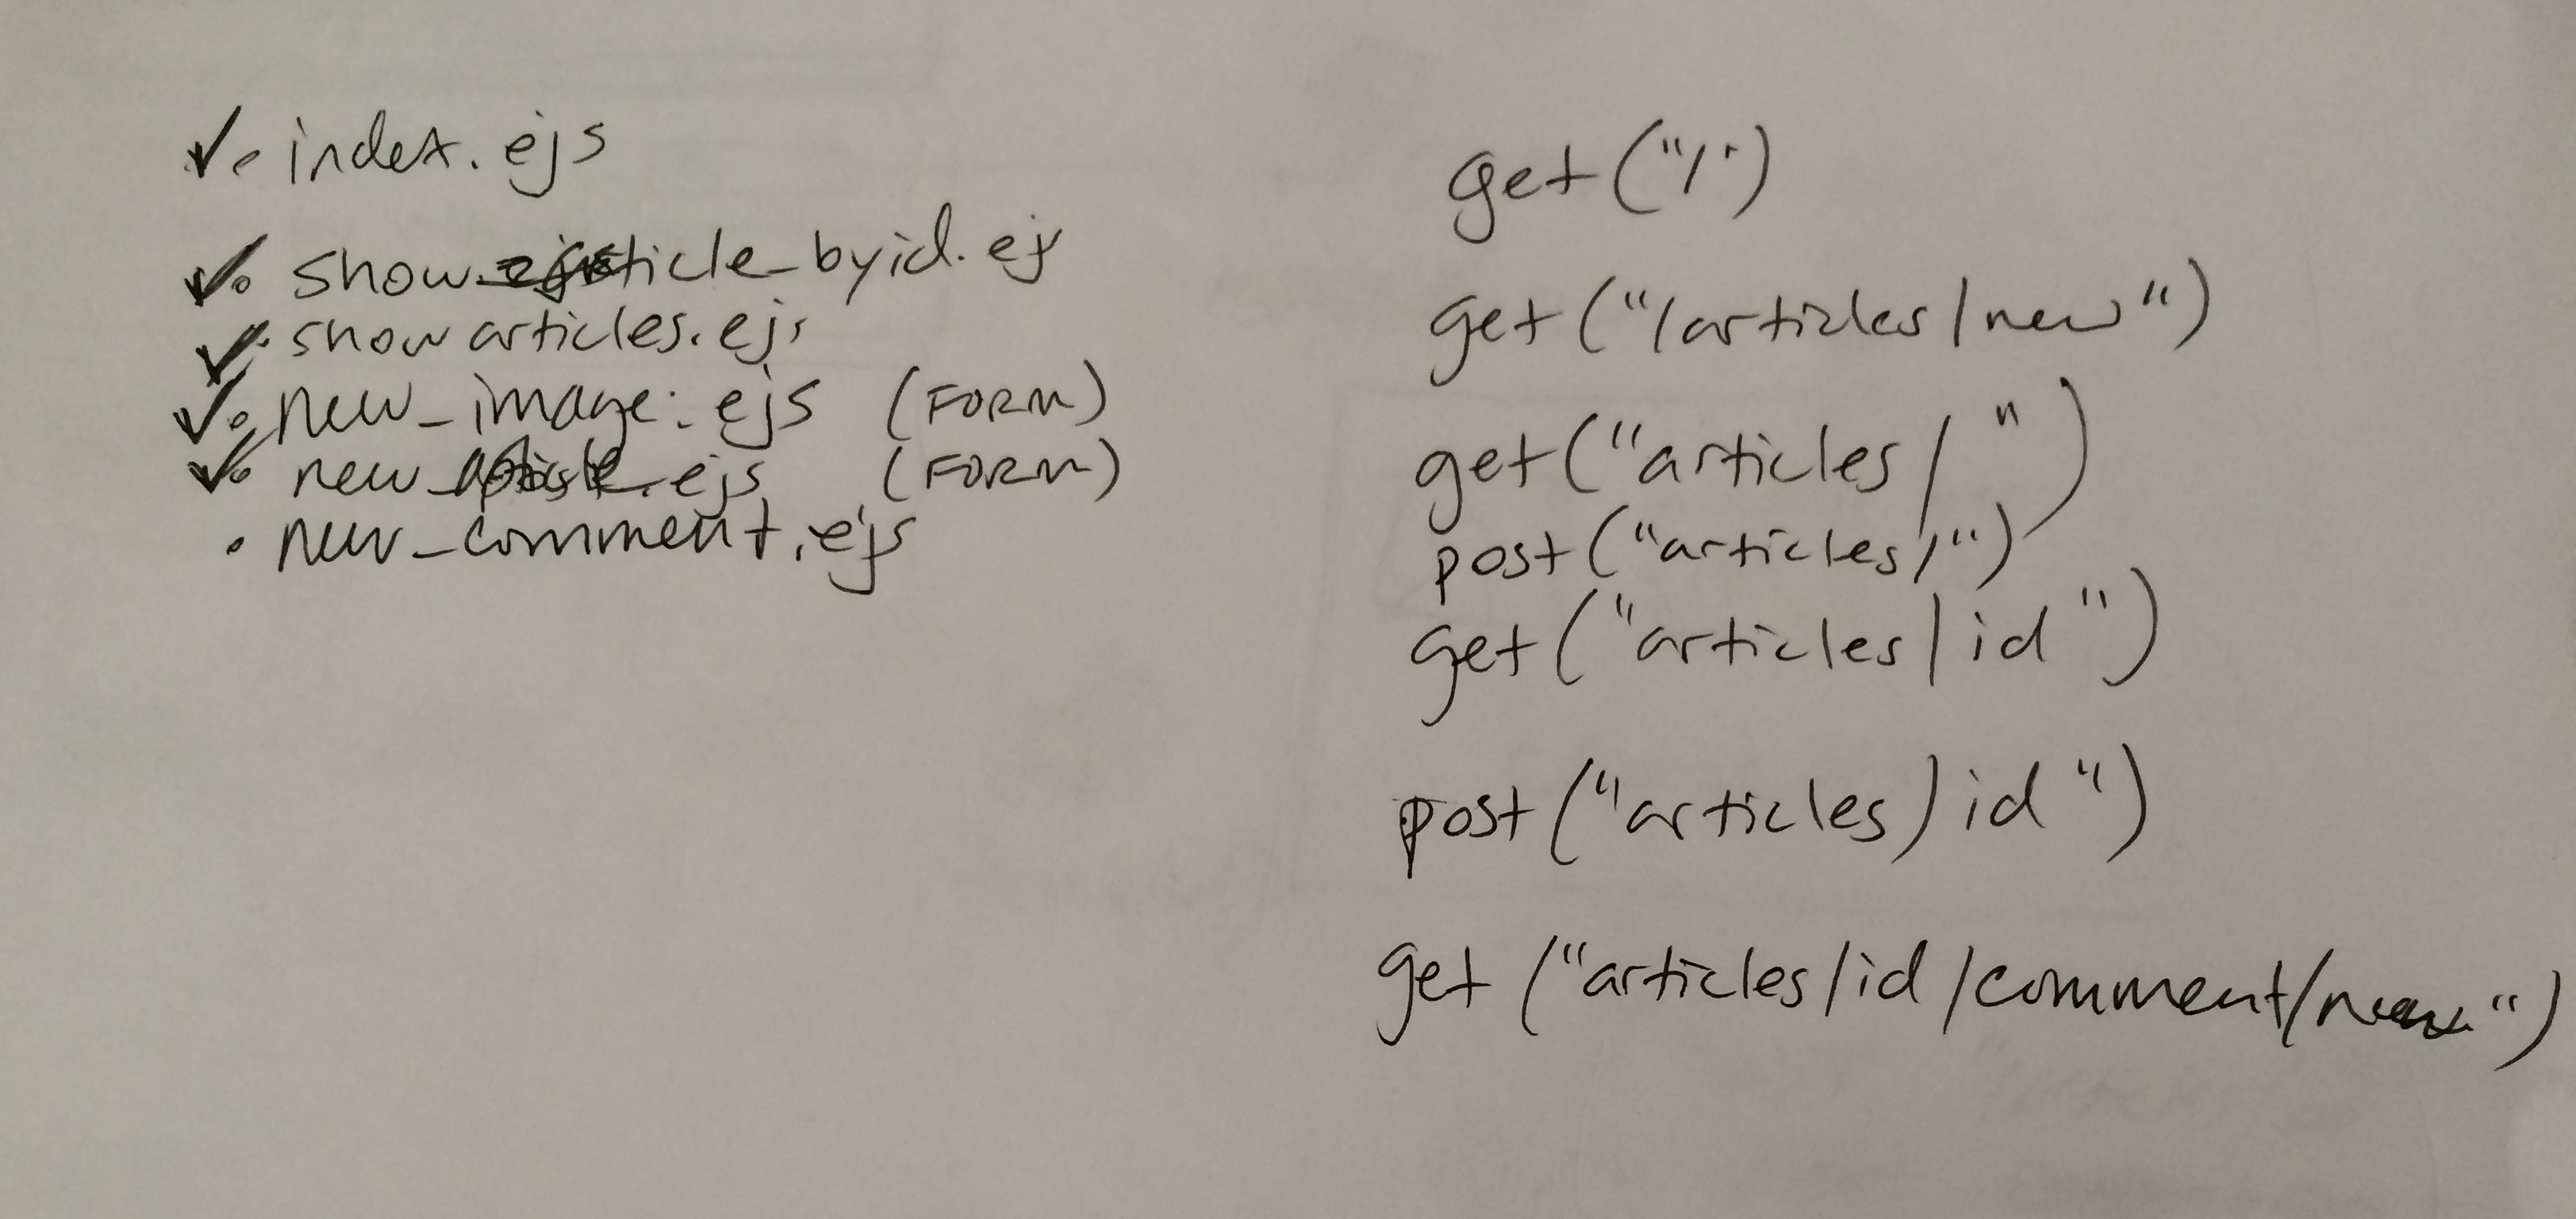 ✓ • index.ejs
✓ • show_article_byid.ej
✓ • show articles.ejs
✓ • new_image.ejs (FORM)
✓ • new_article.ejs (FORM)
• new_comment.ejs
get("/")
get("/articles/new")
get("articles/ ")
post("articles/")
get("articles/id")
post("articles/id")
get("articles/id/comment/new")